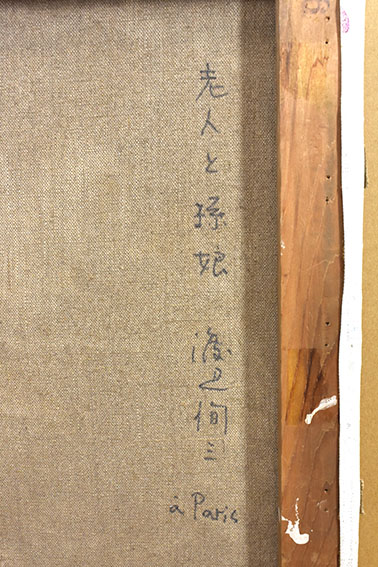 老人と孫娘
渡辺恂三
à Paris